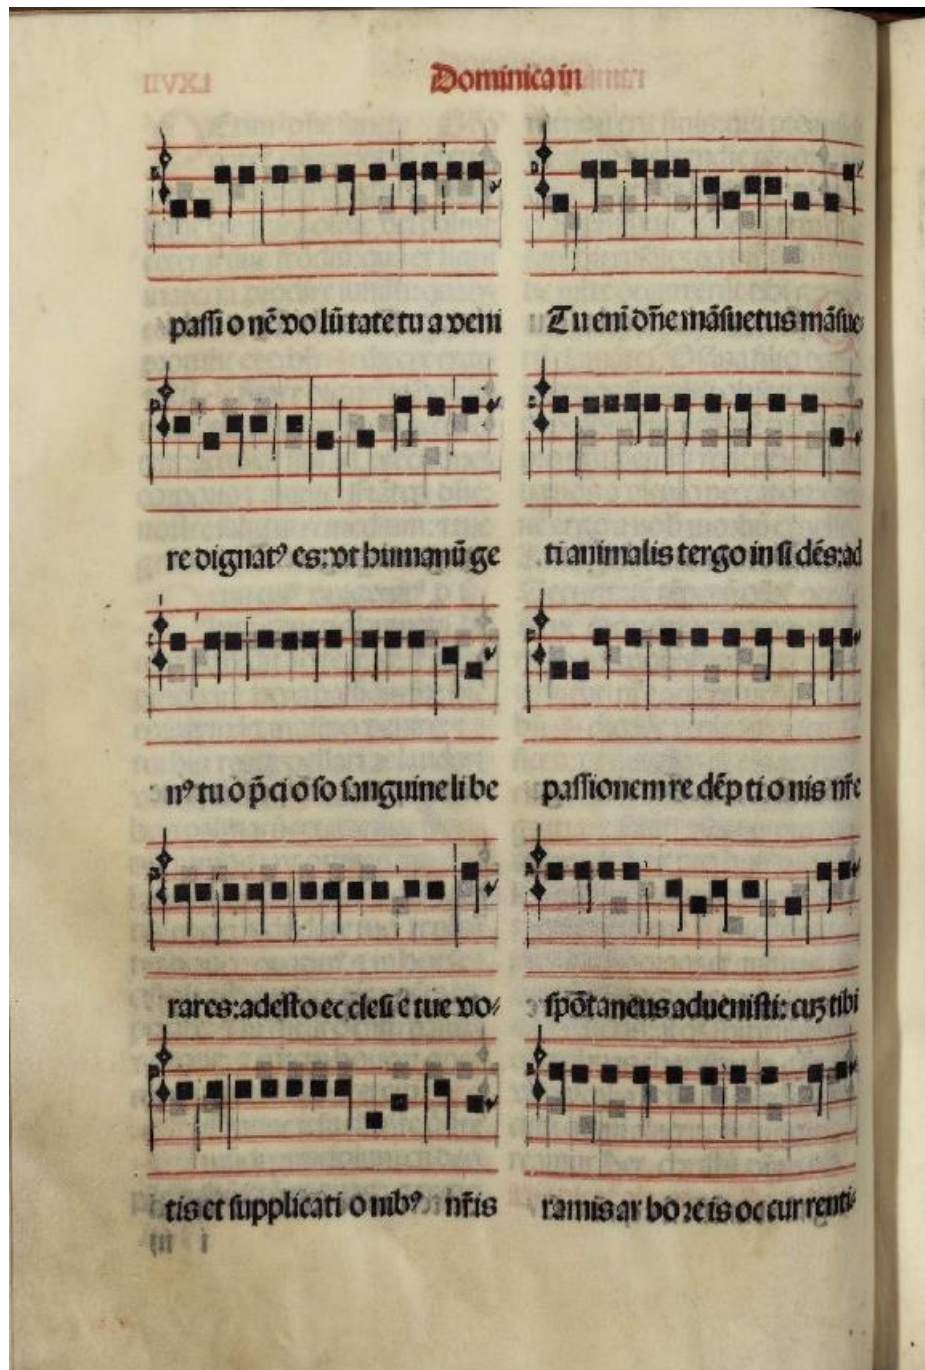 Dominica in
passi o nē vo lū tate tu a veni
re dignatꝰ es: vt humanū ge
nꝰ tu o p̄ci o so sanguine li be
rares: adesto ec clesi e tue vo⸗
tis et supplicati o nibꝰ nr̄is
Tu eni dn̄e māsuetus māsue
ti animalis tergo in si dēs: ad
passionem re dēp ti o nis nr̄e
spōtaneus aduenisti: cuꝫ tibi
ramis ar boreis oc cur renti⸗